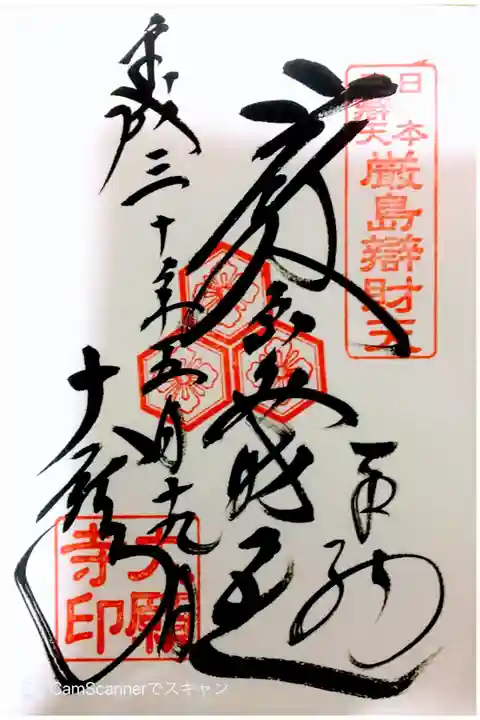 日本
辨天
厳島辯財天
奉拝
平成三十年五月十九日
大願寺
大願
寺印
CamScannerでスキャン